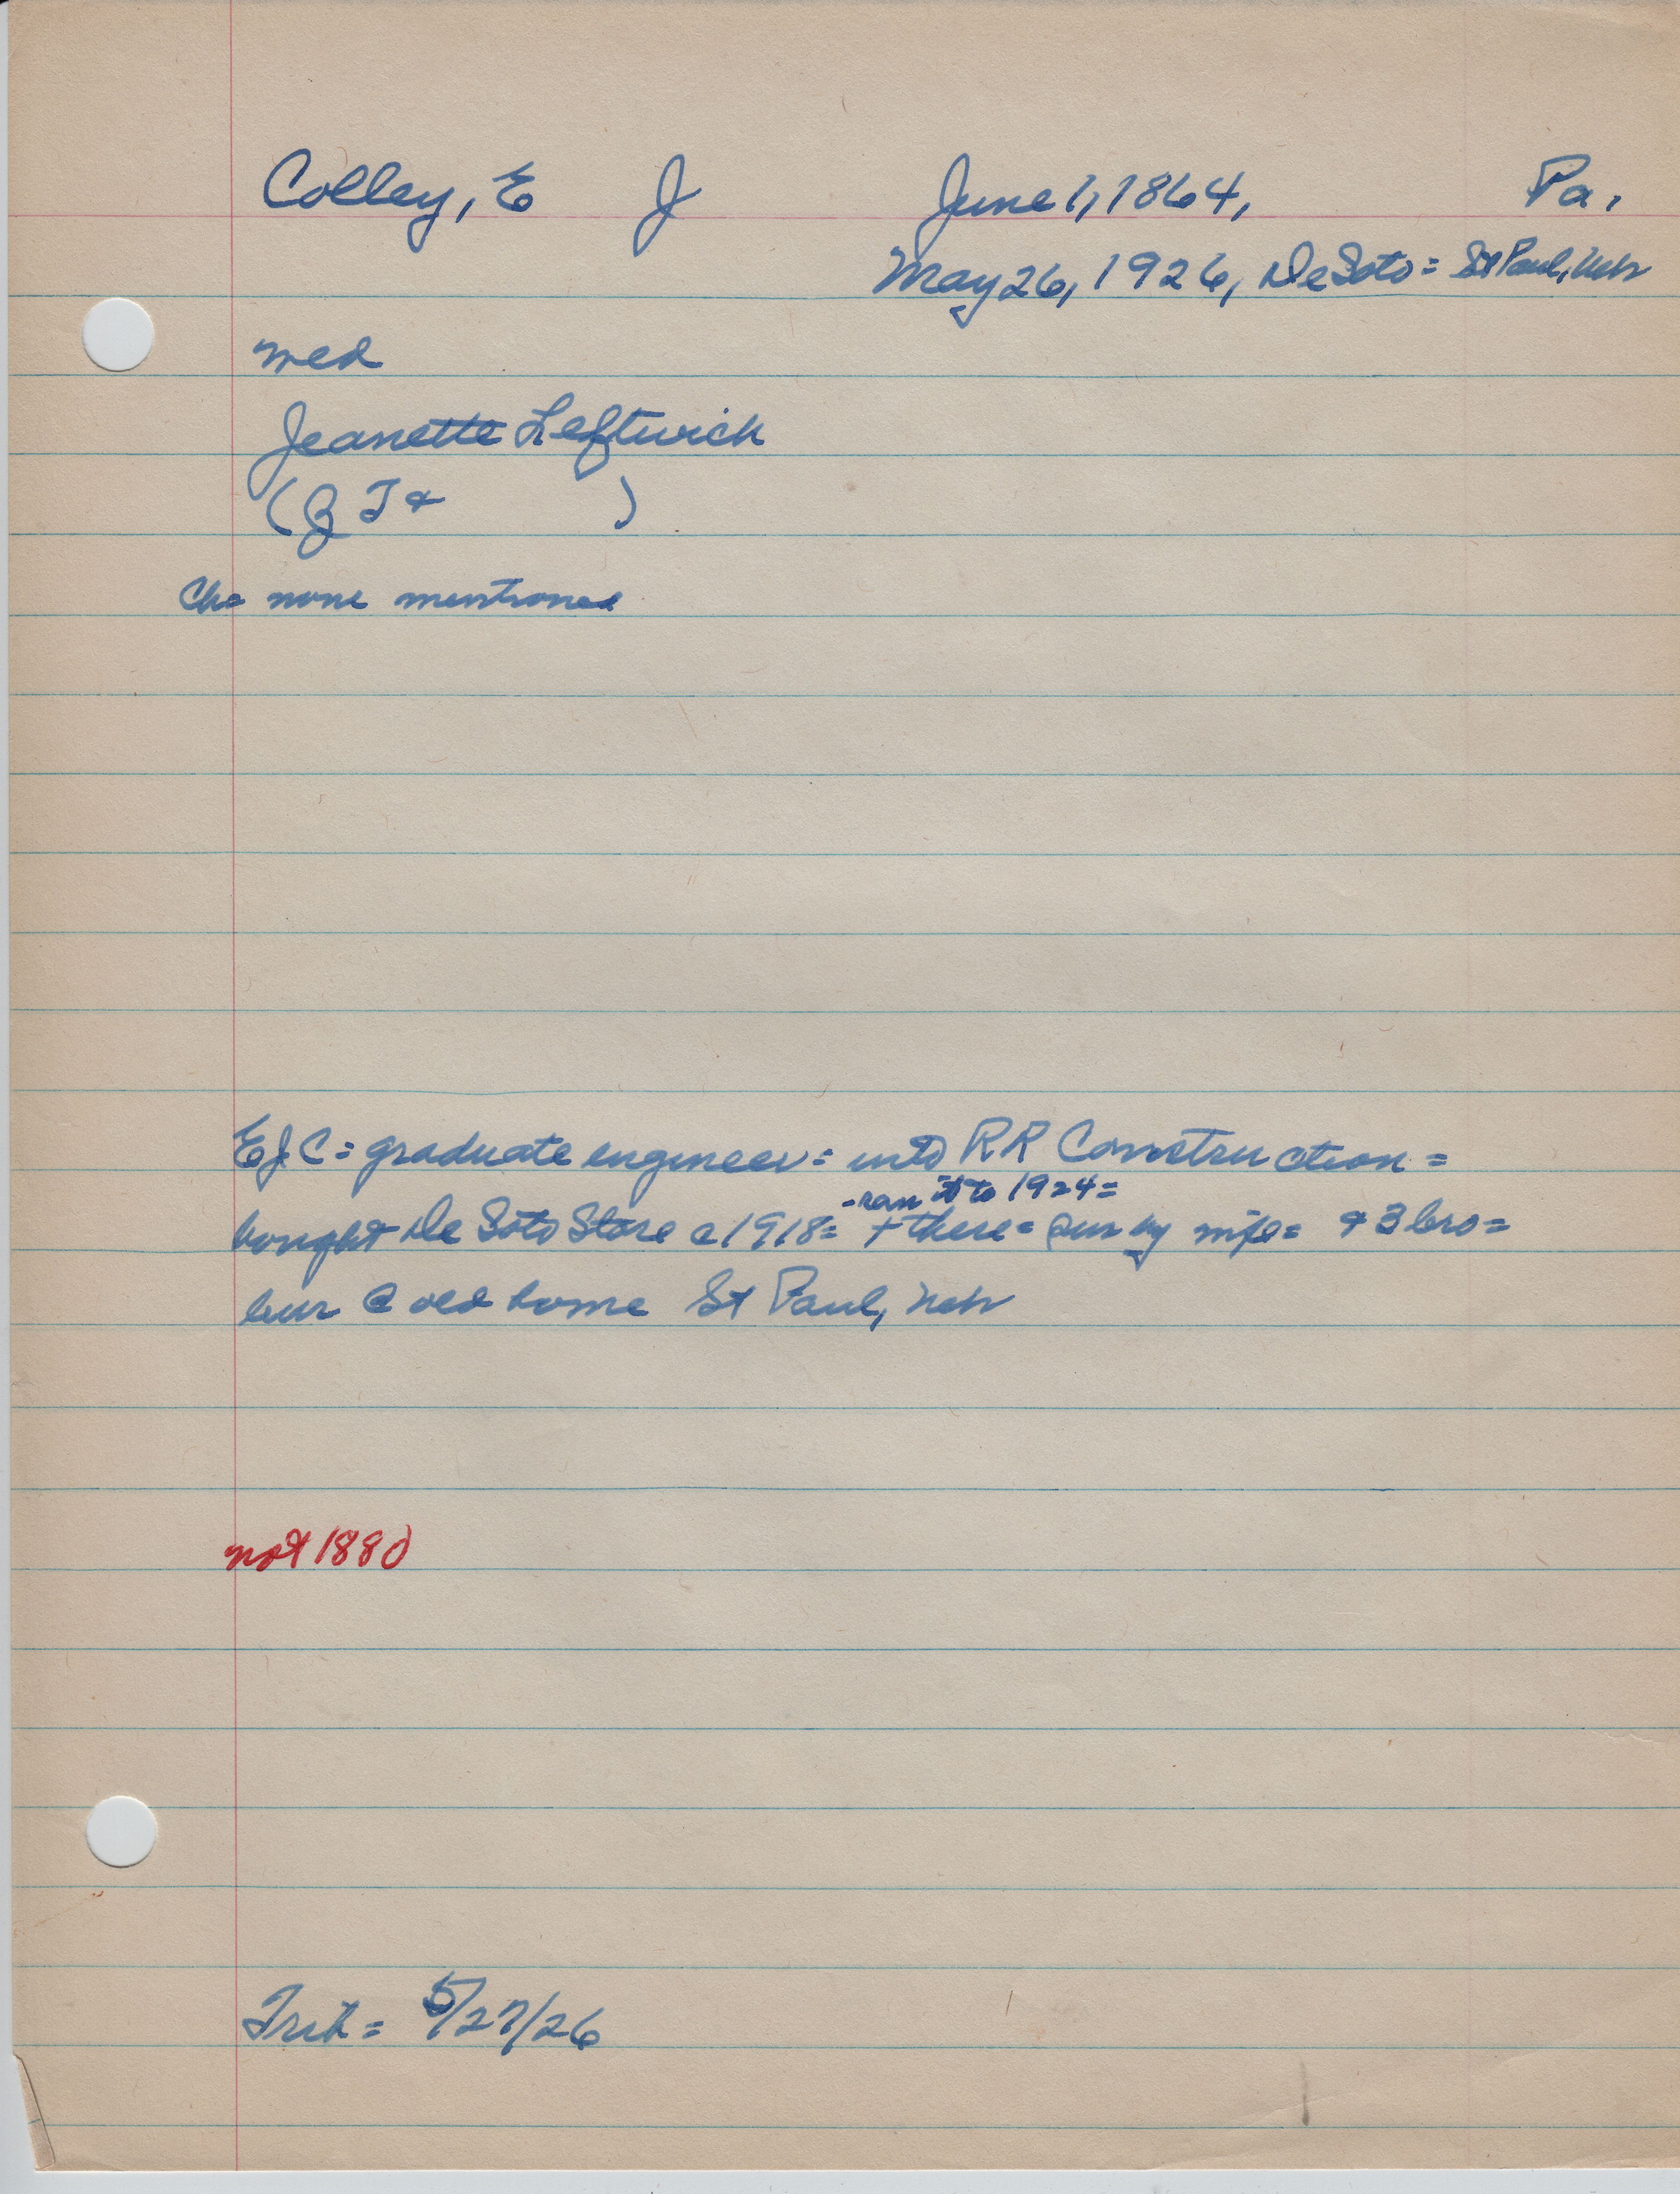 Colley, E J June 1, 1864, Pa.
May 26, 1926, DeSoto = St Paul, Neb
med
Jeanette Leftwich
( J T & )
Ch = none mentioned
EJC = graduate engineer = into RR Construction =
- ran it to 1924 =
bought De Soto Store c 1918 = + there = sur by wife = & 3 bro =
bur @ old home St Paul, Neb
not 1880
Trib = 5/27/26